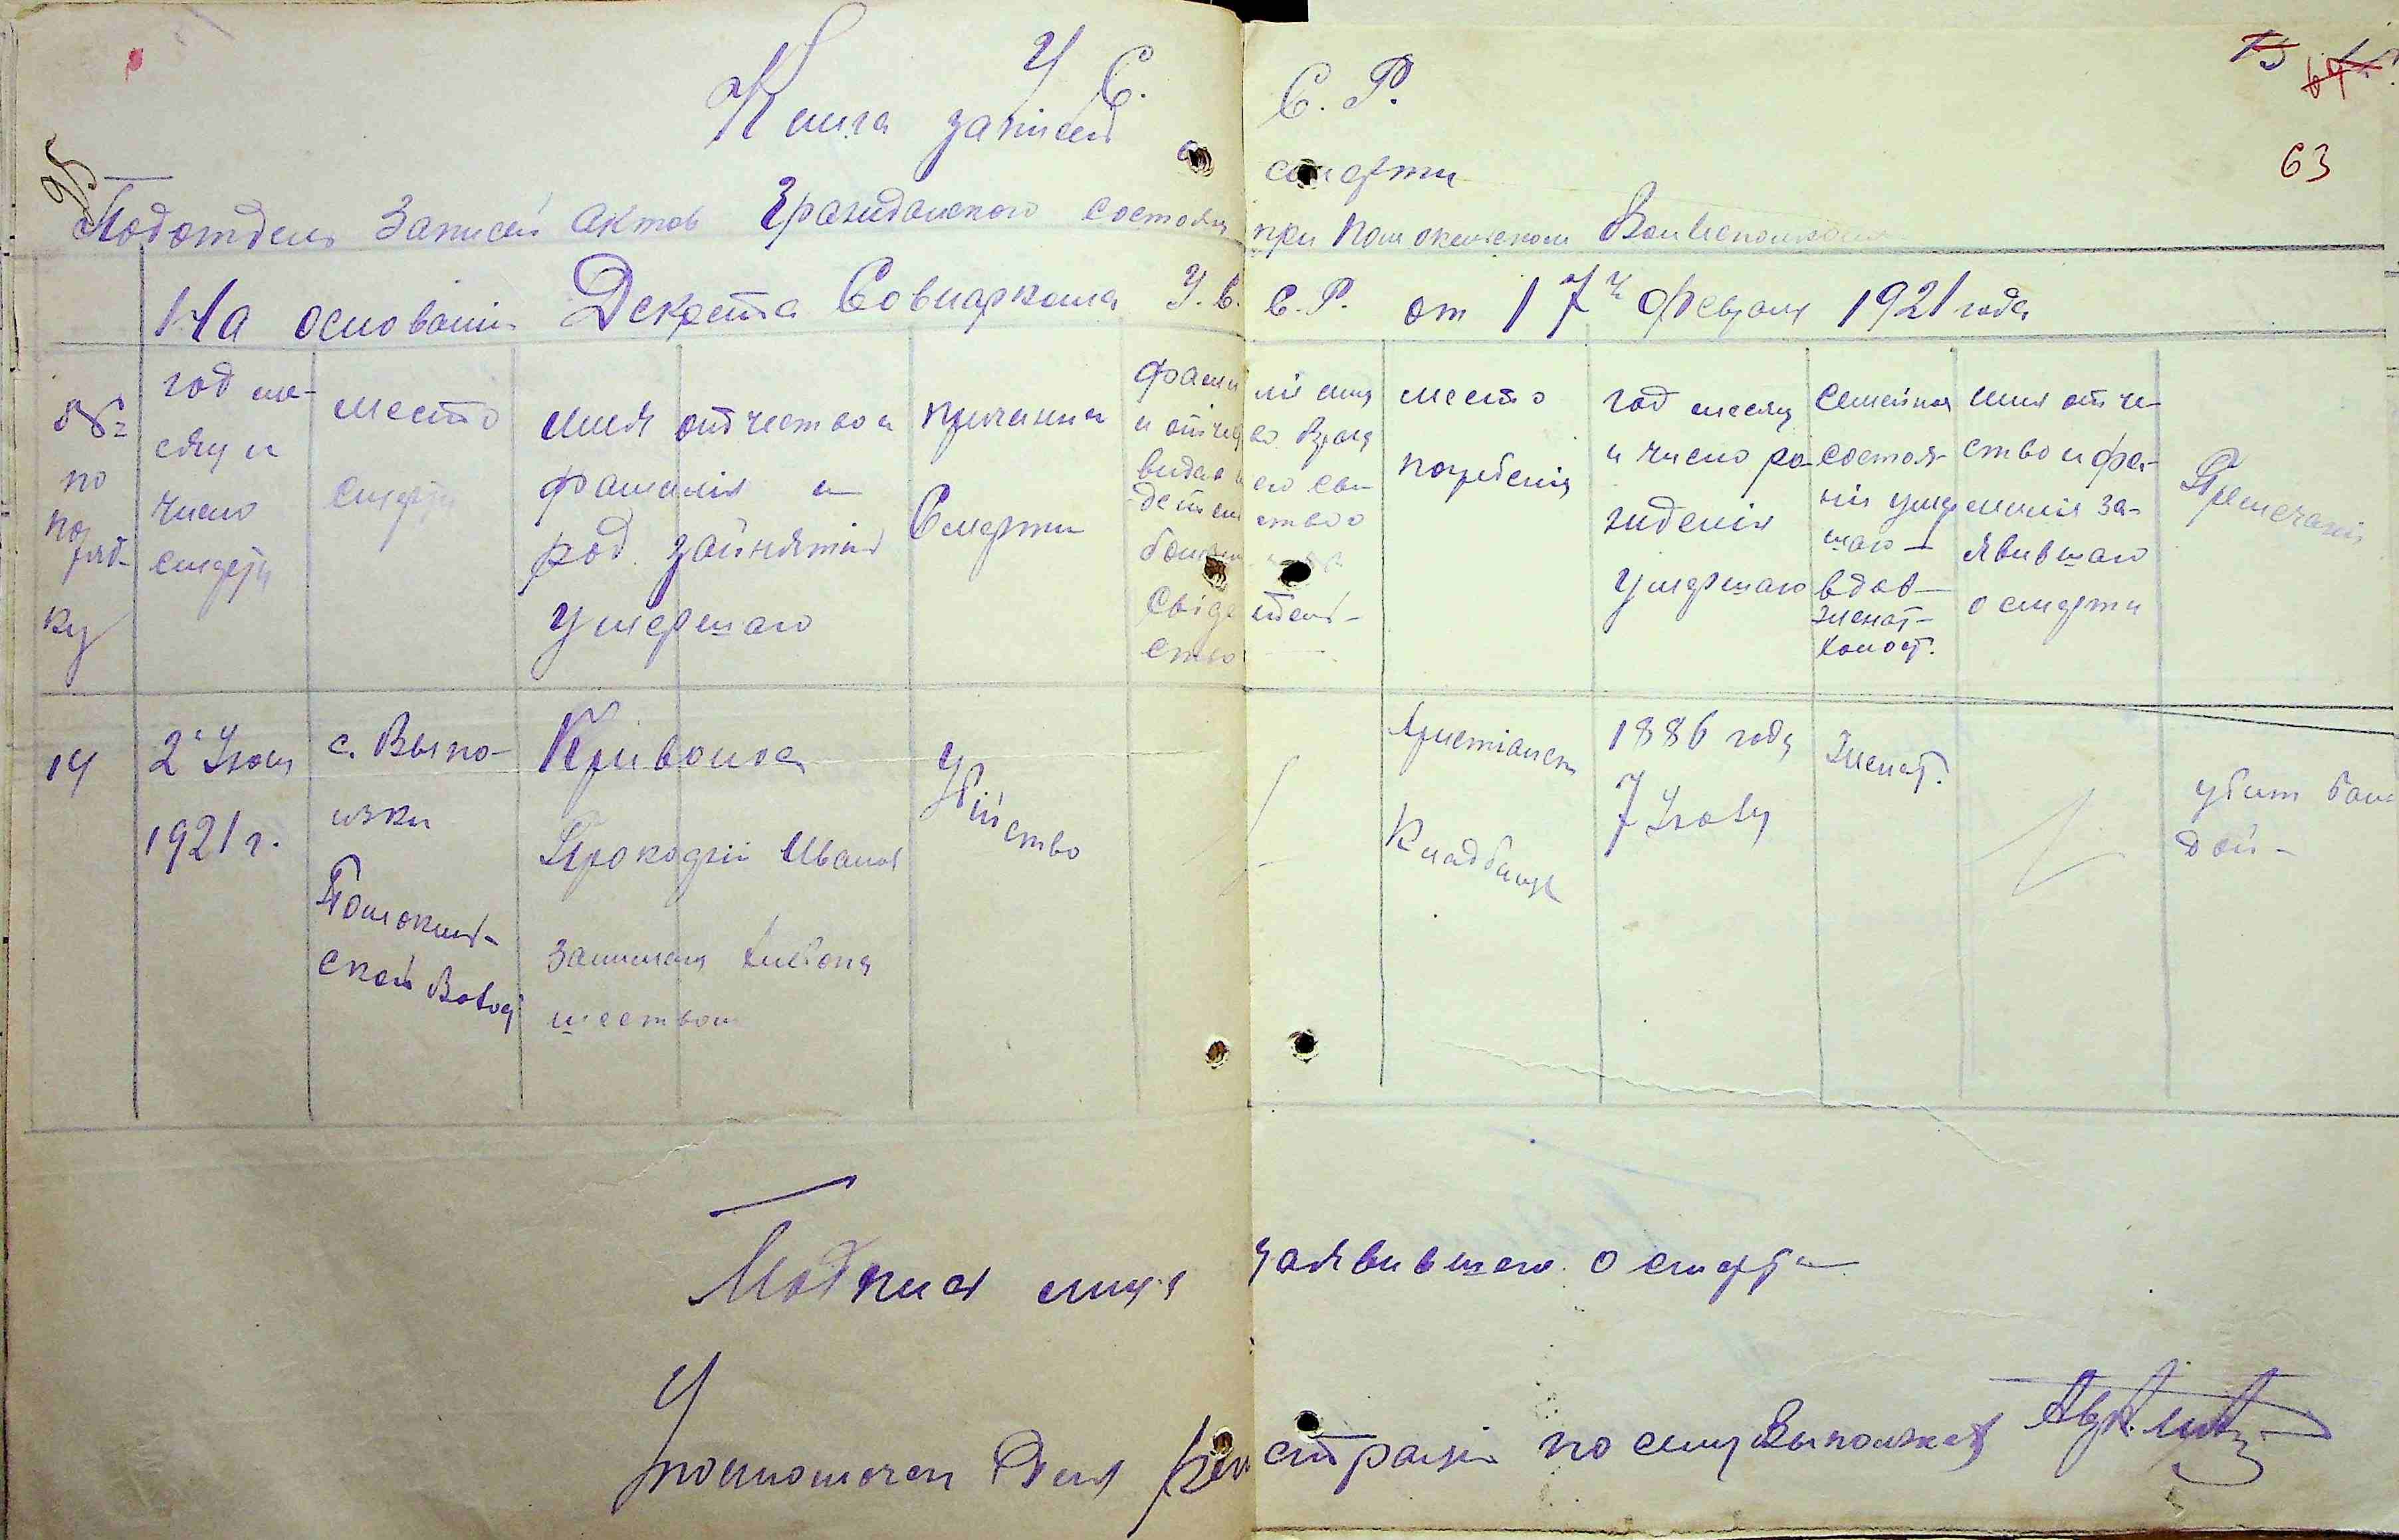 У. С. С. Р.
Книга записей о смерти
Подотдель Записей актов Гражданскаго состоянія при Потокском Волисполкоме
На основаніи Декрета Совнаркома У. С. С. Р. от 17го февраля 1921 года
№ по порядку
год месяц и число смерти
место смерти
имя отчество и фамилія и род занятия умершаго
причина Смерти
фамилія имя и отчество врача
место погребенія
год месяц и число рожденія умершаго
Семейная состоянія умершаго вдов женат холост.
имя отчество и фамилія заявившаго о смерти
Примечанія
14
2 Іюля
1921 г.
с. Выпо-
лзки
ской Волост
Кривонос
Прокофій Иванов
занимался хлебопа
шеством
Убийство
Христіанск
Кладбище
1886 года
7 Іюля
Женат.
убит бан
дой
Подпись лица заявившего о смерти
Уполномочен Для регистраціи по селу
95
63